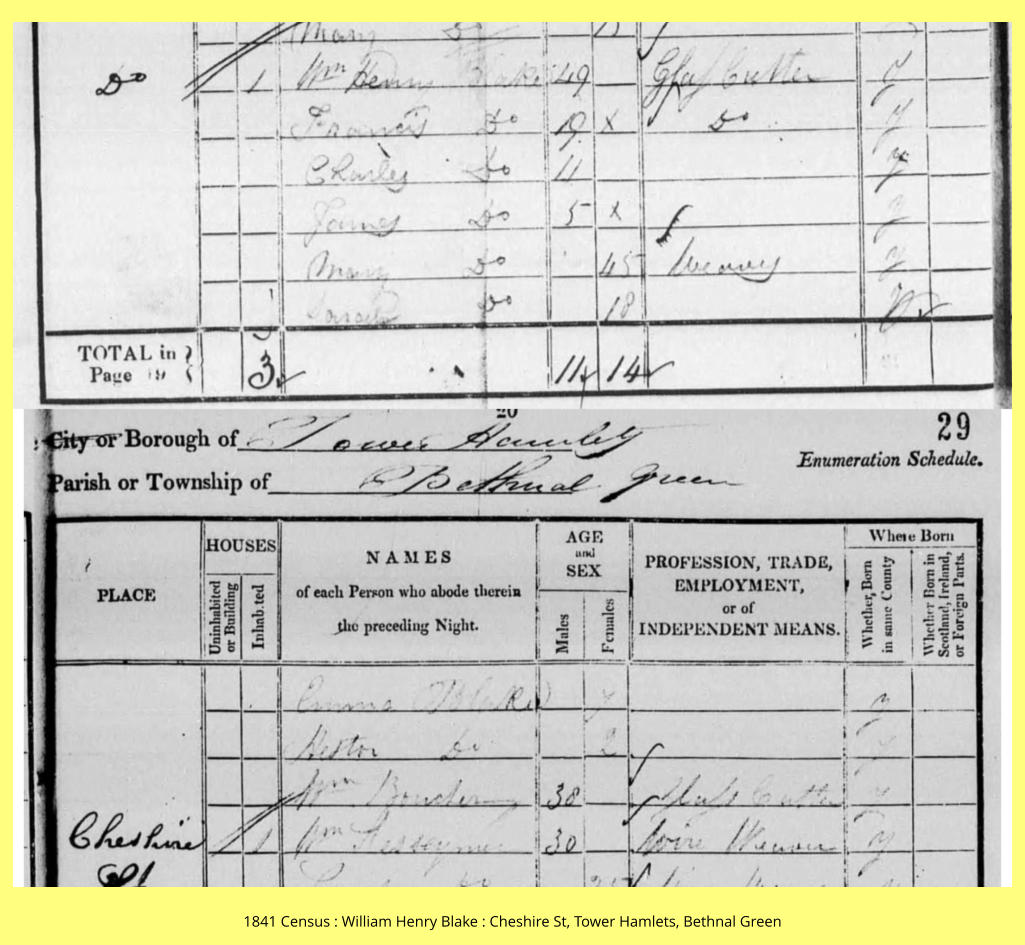 Mary Do 12
Do 1 Wm Henry Blake 49 Glass Cutter y
Francis Do 19 x Do y
Charles Do 11 y
James Do 5 x y
Mary Do 45 Weaver y
Do 18 y
TOTAL in
Page 19 3 11 14
20
City or Borough of Tower Hamlets
29
Enumeration Schedule.
Parish or Township of Bethnal Green
PLACE
HOUSES
Uninhabited or Building
Inhabited
NAMES
of each Person who abode therein
the preceding Night.
AGE
and
SEX
Males
Females
PROFESSION, TRADE,
EMPLOYMENT,
or of
INDEPENDENT MEANS.
Where Born
Whether Born in same County
Whether Born in Scotland, Ireland, or Foreign Parts.
Emma Blake 7 y
Hestor Do 2 y
Wm 38 Glass Cutter y
Cheshire 1 Wm 30 Wire Weaver y
St
1841 Census : William Henry Blake : Cheshire St, Tower Hamlets, Bethnal Green